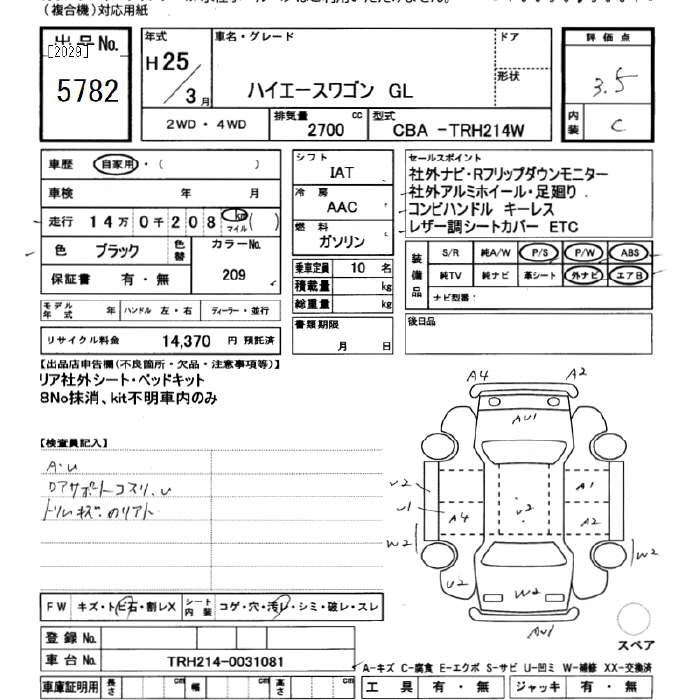 (複合機)対応用紙
出品No.
[2029]
5782
年式
H25/3月
車名・グレード
ハイエースワゴン GL
ドア
形状
評価点
3.5
内装
C
2WD・4WD
排気量
2700 cc
型式
CBA -TRH214W
車歴 自家用・( )
車検 年 月
走行 14万0千208 km マイル ( )
色 ブラック
色替
カラーNo.
209
保証書 有・無
モデル年式 年
ハンドル 左・右
ディーラー・並行
リサイクル料金 14,370 円 預託済
シフト
IAT
冷房
AAC
燃料
ガソリン
乗車定員 10 名
積載量 kg
総重量 kg
書類期限
月 日
セールスポイント
社外ナビ・Rフリップダウンモニター
社外アルミホイール・足廻り
コンビハンドル キーレス
レザー調シートカバー ETC
装備品
S/R 純A/W P/S P/W ABS
純TV 純ナビ 革シート 外ナビ エアB
ナビ型番:
後日品
【出品店申告欄(不良箇所・欠品・注意事項等)】
リア社外シート・ベッドキット
8No抹消、kit不明車内のみ
【検査員記入】
A・u
ロアサポートコスリ、u
ドリルキズ・のリアト
A4 A2
AU1
U2
U1
A4
A1
A2
U2
W2
W2
U2
W2
AU1
スペア
FW キズ・トビ石・割レX
シート内装 コゲ・穴・汚レ・シミ・破レ・スレ
登録No.
車台No. TRH214-0031081
A-キズ C-腐食 E-エクボ S-サビ U-凹ミ W-補修 XX-交換済
車庫証明用 長さ cm 幅 cm 高さ cm
工具 有・無 ジャッキ 有・無